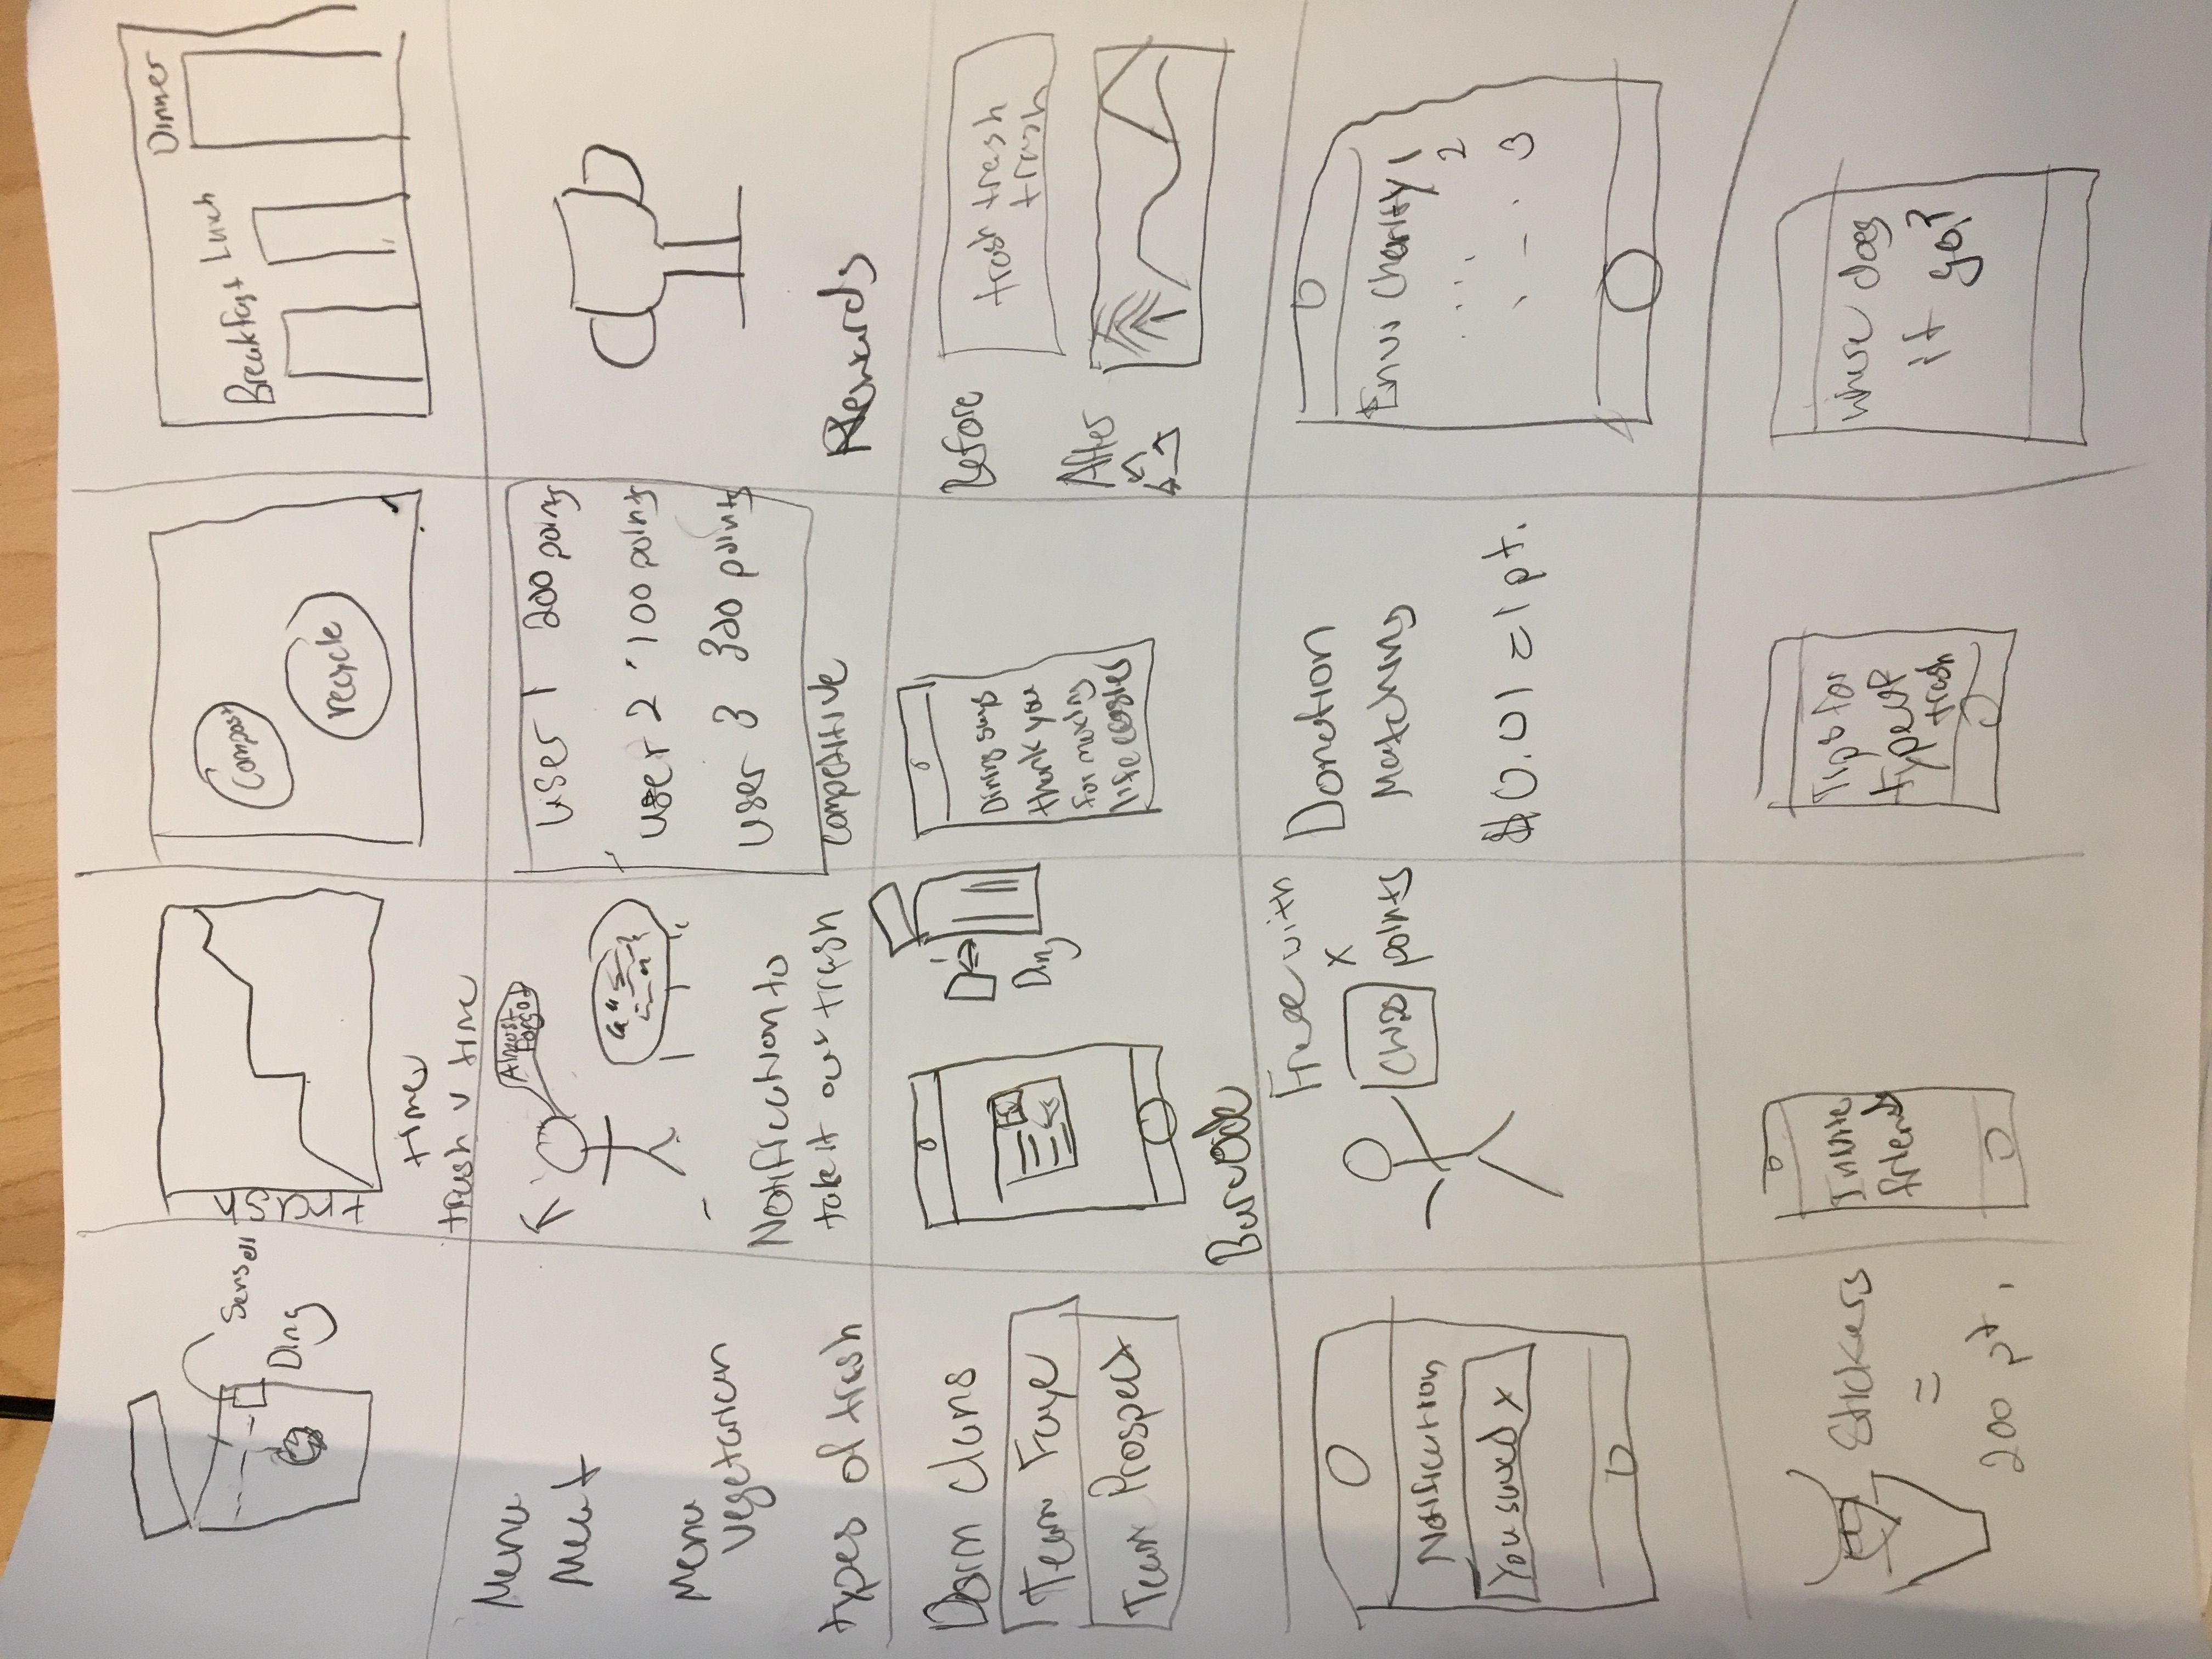 Sensor
Ding
trash
time
trash v time
compost
recycle
Breakfast Lunch Dinner
Menu
Meat
Menu
vegetarian
types of trash
Almost
Forgot
Notification to
take it our trash
user 1 200 points
user 2 100 points
user 3 300 points
competitive
Rewards
Dorm clans
Team Faye
Team Prospect
Ding
Barcode
Dining says
thank you
for making
life easier
Before
trash trash
trash
After
Notification
You saved x
Free with
x
points
Chips
Donation
Matching
$0.01 = 1 pt.
Envi Charity 1
2
3
Stickers
=
200 pt.
Invite
friends
Tips for
type of
trash
where does
it go?